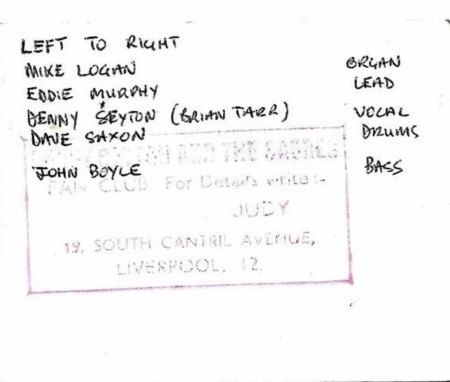 LEFT TO RIGHT
MIKE LOGAN ORGAN
EDDIE MURPHY LEAD
DENNY SEYTON (BRIAN TARR) VOCAL
DAVE SAXON DRUMS
AND THE SABRES
JOHN BOYLE BASS
FAN CLUB For Details write:-
JUDY
19, SOUTH CANTRIL AVENUE,
LIVERPOOL, 12.